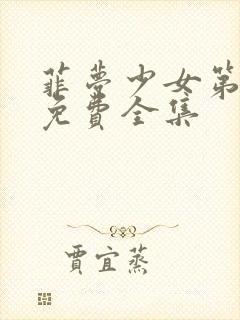 菲夢少女第
免費全集
賈宜蒸